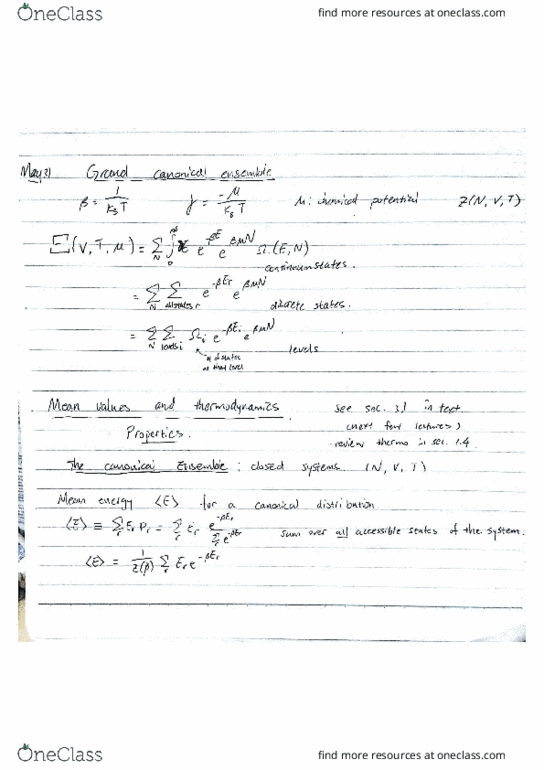 OneClass find more resources at oneclass.com
May 31 Grand canonical ensemble
β = 1/(k_B T) γ = -μ/(k_B T) μ: chemical potential Z(N, V, T)
Ξ(V, T, μ) = Σ_N ∫_0^∞ e^{-βE} e^{βμN} Ω(E, N)
continuum states.
= Σ_N Σ_{all states r} e^{-βEr} e^{βμN} discrete states.
= Σ_N Σ_{levels i} Ω_i e^{-βEi} e^{βμN} levels
# of states
at that level
Mean values and thermodynamics See sec. 3.1 in text
Properties. (next few lectures)
review thermo in sec. 1.4.
The canonical Ensemble: closed systems (N, V, T)
Mean energy <E> for a canonical distribution
<E> ≡ Σ_r E_r P_r = Σ_r E_r e^{-βEr} / Σ_r e^{-βEr} sum over all accessible states of the system.
<E> = 1/Z(β) Σ_r E_r e^{-βEr}
OneClass find more resources at oneclass.com